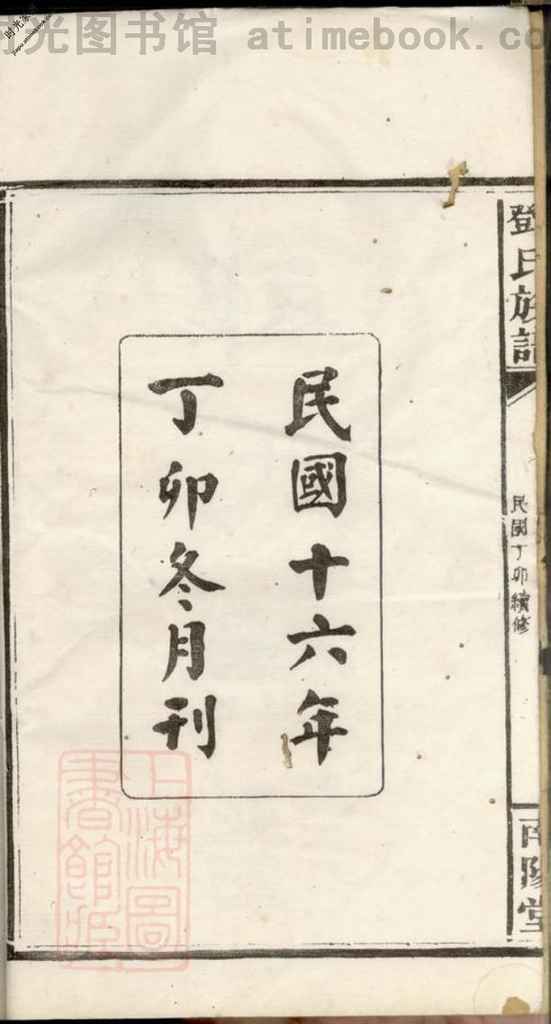 时光图书馆 atimebook.co
鄧氏族譜
民國丁卯續修
南陽堂
民國十六年
丁卯冬月刊
上海圖
書館藏